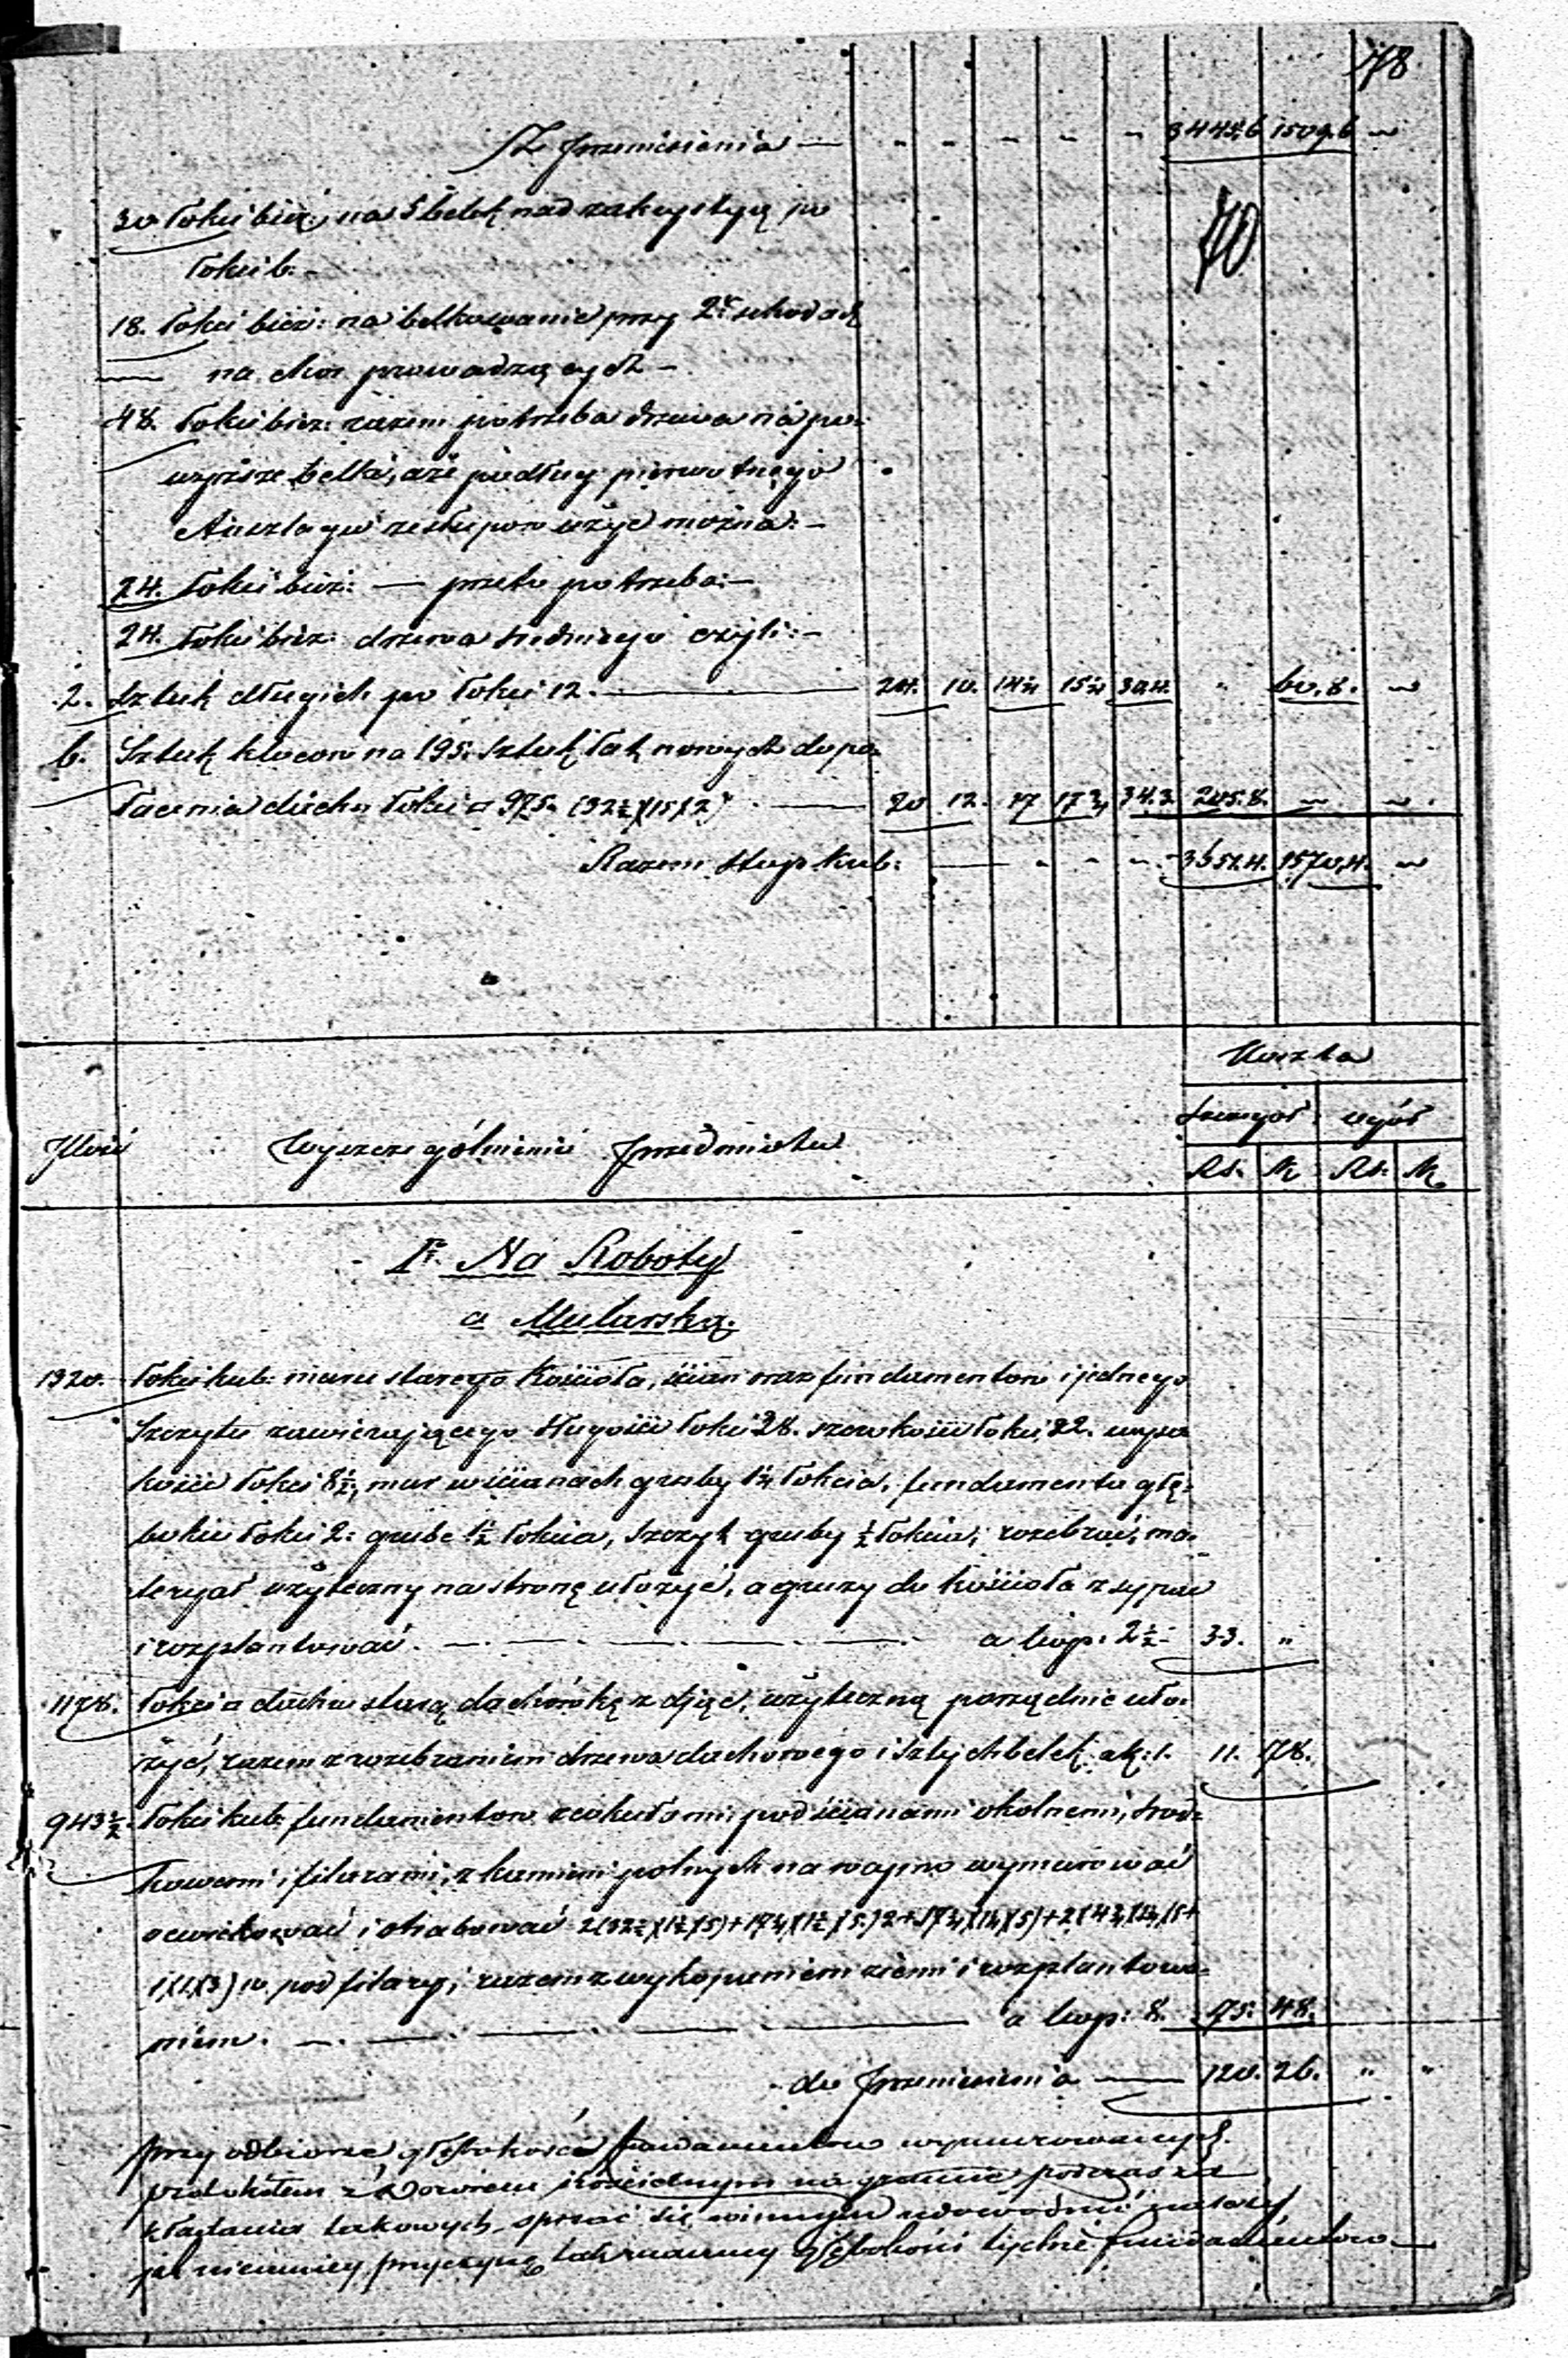 78
Z Przeniesienia — - - - - - 3445.6 1509.6 —
70
30 łokci bież: na 5 belek nad zakrystyą po
łokci 6. -
18. łokci bież: na belkowanie przy 2ch schodach
na chór prowadzących -
48. łokci bież: razem potrzeba drzewa na po-
wyższe belki, aże podług pierwotnego
Anszlagu użyć można: -
24. łokci bież: — przeto potrzeba: -
24. łokci bież: drzewa średniego czyli: -
2. Sztuk długich po łokci 12. — 24. 10. 14¼ 15¼ 30.4. " 60.8. —
6. Sztuk kloców na 195. Sztuk łat nowych do po-
łacenia dachu łokci □ 975. (32½)(15)(2) — 20 12. 17 17¾ 34.3 205.8. — —
Razem stóp kub: — - - - 3651.4. 1570.4. —
Koszta
szczegół: ogół
Ilość Wyszczególnienie Przedmiotu Rs. K Rs. K
I. Na Roboty
a Mularską.
1320. łokci kub: muru starego Kościoła, ścian oraz fundamentów i jednego
Szczytu zawierającego długości łokci 28. szerokości łokci 22. wyso-
kości łokci 8½, mur w ścianach gruby 1¼ łokcia, fundamenta głę-
bokie łokci 2: grube 1½ łokcia, Szczyt gruby ½ łokcia; rozebrać, ma-
teryał użyteczny na stronę ułożyć, a gruzy do kościoła zsypać
i rozplantować. — a kop: 2½ - 33. "
1178. łokci □ dachu starą dachówkę zdjąć, użyteczną porządnie uło-
żyć, razem z rozebraniem drzewa dachowego i belek. a k: 1. 11. 78.
943½. łokci kub: fundamentów pod ścianami okolnemi, środ-
kowemi i filarami, z kamieni polnych na wapno wymurować
i 2(32½)(1½)(5)+17¾(1½)(5)2+17¾
pod filary; razem z wykopaniem ziemi i rozplantowa-
niem. — a kop: 8. 75. 48.
do Przeniesienia — 120. 26. " "
przy odbiorze głębokość fundamentów wymurowanych.
protokółem z Dozorem Kościelnym na gruncie podczas za-
kładania takowych spisać się winnym udowodnić należy
jak niemniej przyczynę głębokości tychże fundamentów —